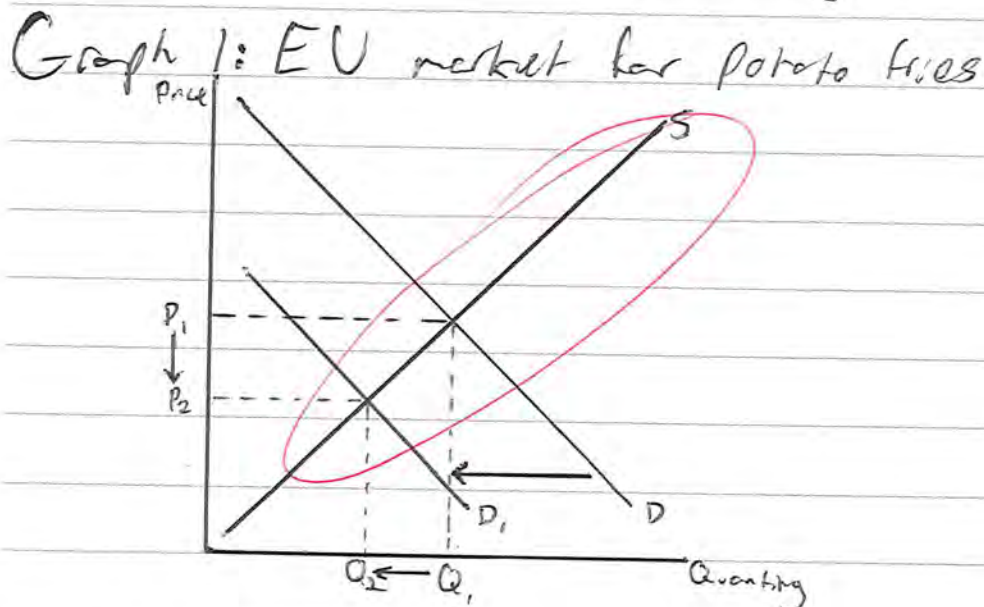 Graph 1: EU market for potato fries
Price
S
P₁
P₂
D₁
D
Q₂
Q₁
Quantity